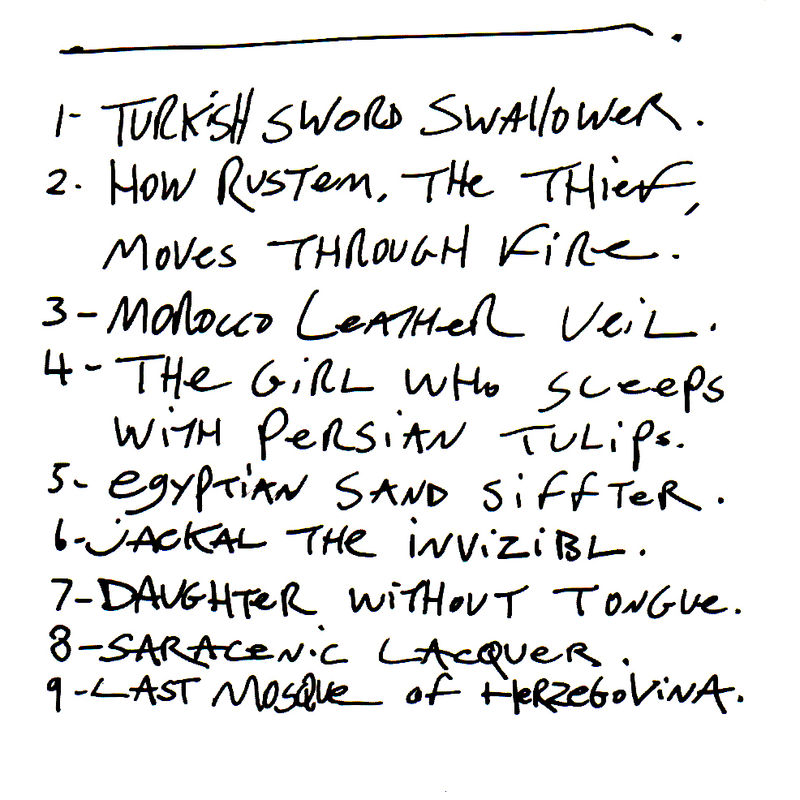 1- TURKiSH SWORD SWAllOWeR.
2. HOW RUSTem, THe THieF,
MOVes THROUGH FiRe.
3- MOROCCO LeATHeR VeiL.
4- THe GiRL WHo SLeepS
WiTH PeRSiAN TULips.
5- eGYPTiAN SAND SiFFTeR.
6- jACKAL THe iNViZiBL.
7- DAUGHTeR WiTHOUT TONGUe.
8- SARACeNiC LACQUeR.
9- LAST MOSQUe oF HeRZeGoViNA.